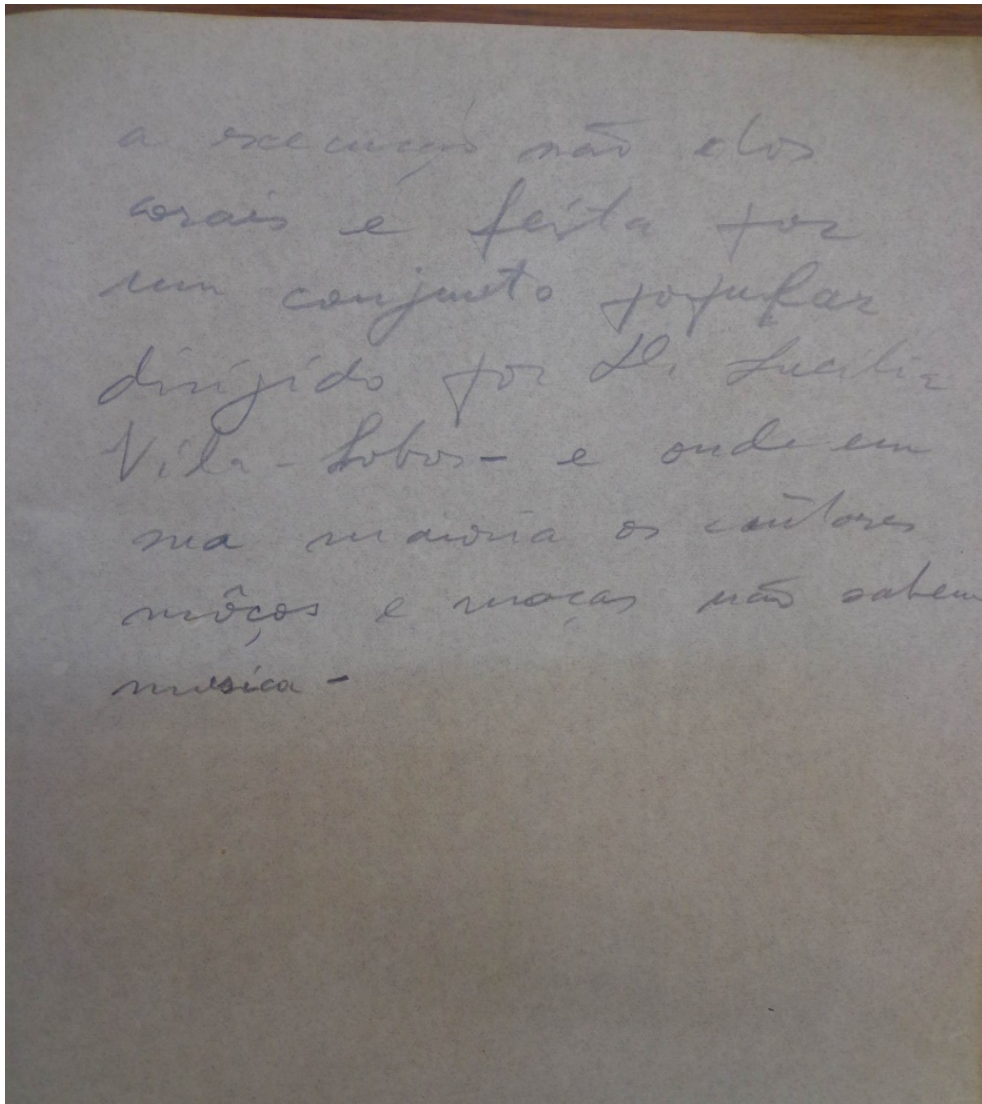 a execução não dos
corais é feita por
um conjunto popular
dirigido por D. Lucilia
Vila-Lobos - e onde em
sua maioria os cantores
môços e moças não sabem
musica -